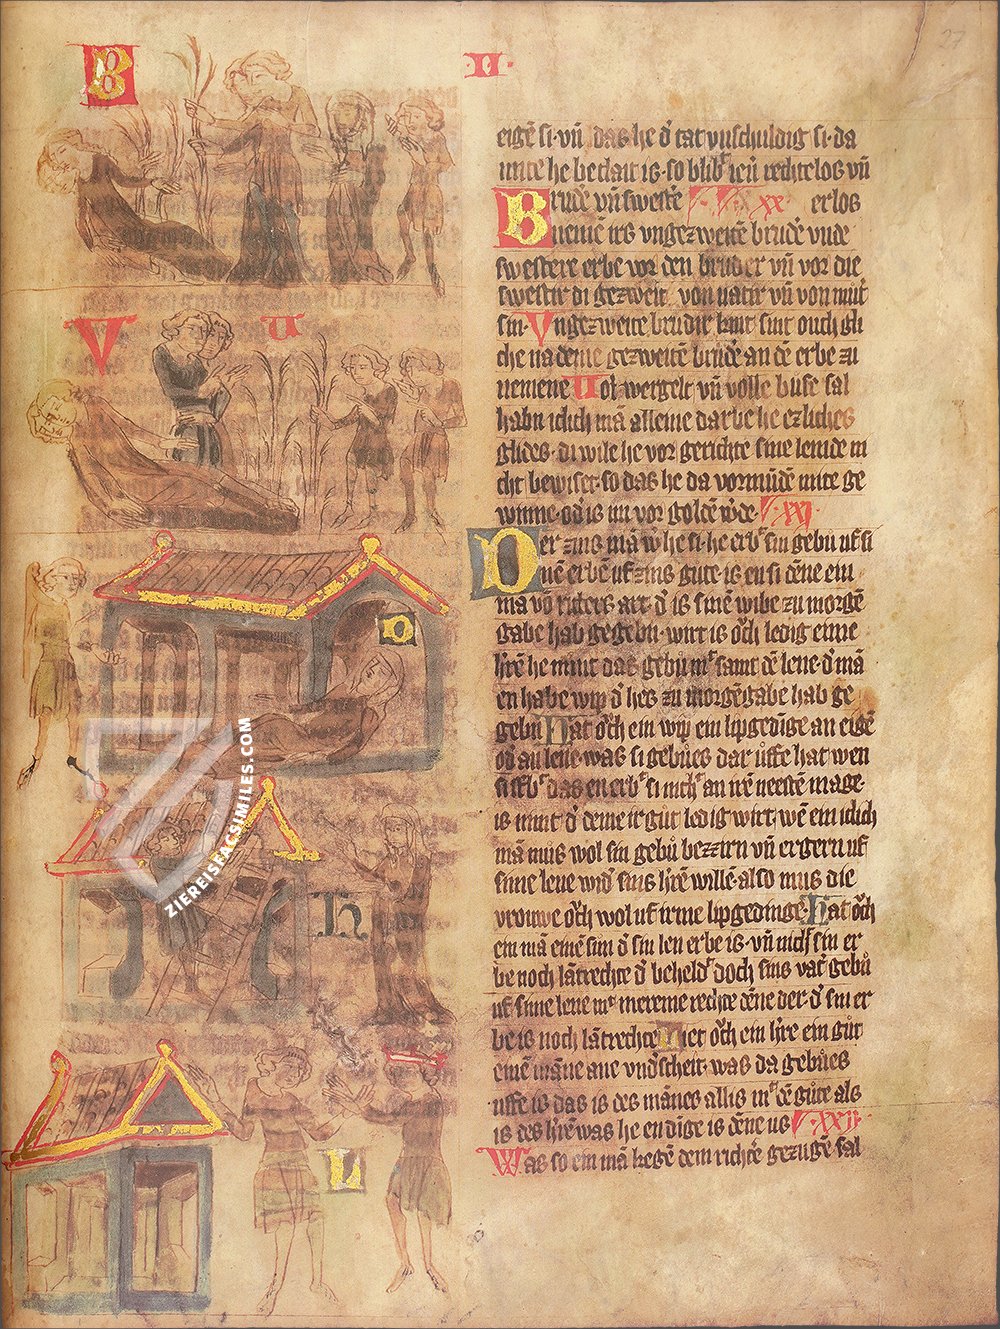 B
II
27
eigē si · vn̄ das he d̓ tat vnschuldig si · da
mite he beclait is · so blib̓ ien rechtelos vn̄
Brud̓e vn̄ sweste᷑ xx erlos
nemē irs vngezweitē brud̓e vnde
swestere erbe vor den bruder vn̄ vor die
swestir di gezweit von vatir vn̄ von mut̓
sin · Vngezweite brudir kint sint ouch gli
che na deme gezweitē brud̓e an dē erbe zu
nemene Not wergelt vn̄ volle buse sal
habn iclich mā alleine dar be he ezliches
glides · di wile he vor gerichte sine lemde ni
cht bewiset · so das he da vormūdē mite ge
winne · od̓ is im vor goldē w̓de · xxj
Der zins mā w̓he si · he erb̓ sin gebu uf si
nē erbē uf zins gute is en si dēne ein
mā vō ritters art · d̓ is sinē wibe zu morgē
gabe hab gegebn · wirt is och ledig eime
h̓ren he nimt das gebu mᷓ samt dē lene · d̓ mā
en habe wip d̓ hes zu morgēgabe hab ge
gebn Hat och ein wip ein lipgedīge an eigē
od̓ an lene · was si gebues dar uffe hat wen
si stb̓ das en erb̓ si nich̓ an irē neestē mage ·
is nimt d̓ deme ir gut ledig wirt · wē ein iclich
mā mus wol sin gebu bezzirn vn̄ ergern uf
sime lene wid̓ sins h̓rē willē · also mus die
vrouwe och wol uf irme lipgedinge · Hat och
ein mā einē sun d̓ sin len erbe is · vn̄ nich̓ sin er
be noch lātrechte d̓ beheld̓ doch sins vat̓ gebu
uf sime lene mᷓ mereme rechte dēne der · d̓ sin er
be is noch lātrechte Liet och ein h̓re ein gut
einē māne ane vnd̓scheit · was da gebues
uffe is das is des mānes allis mᷓ dē gute als
is des h̓re was he en dige is dēne us xxij
Was so ein mā kegē dem richte᷑ gezugē sal
V
U
D
H
L
ZIEREISFACSIMILES.COM